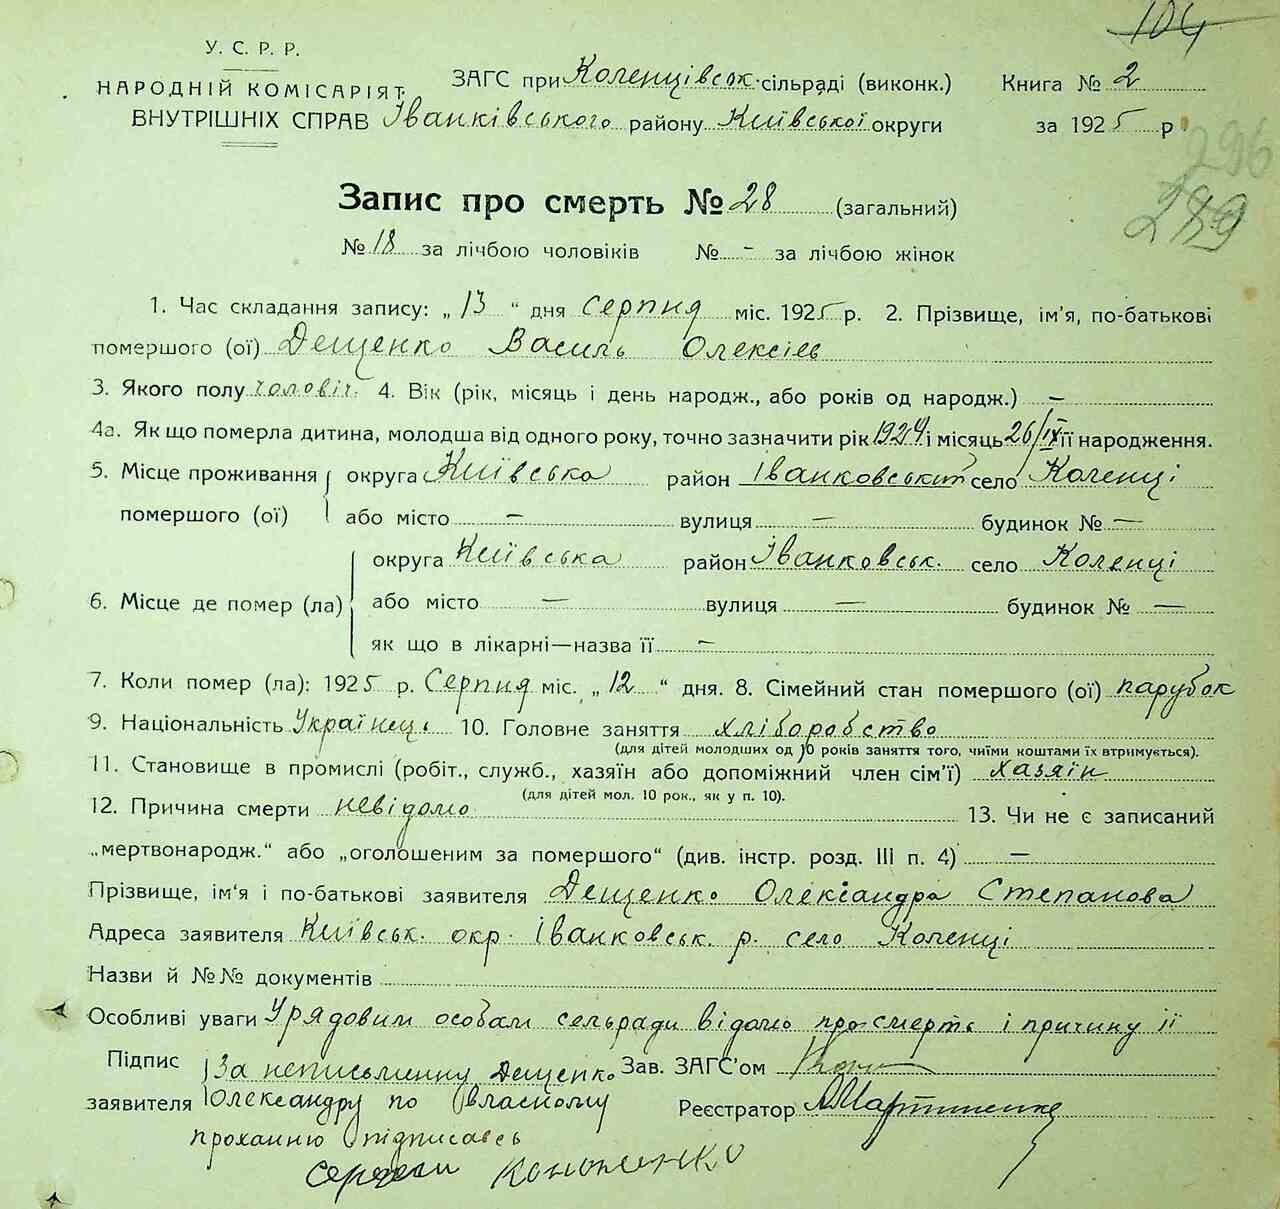 104
У. С. Р. Р.
НАРОДНІЙ КОМІСАРІЯТ
ВНУТРІШНІХ СПРАВ
ЗАГС при Коленцівськ. сільраді (виконк.) Книга № 2
Іванківського району Київської округи за 1925 р
296
289
Запис про смерть № 28 (загальний)
№ 18 за лічбою чоловіків № - за лічбою жінок
1. Час складання запису: „ 13 “ дня Серпня міс. 1925 р. 2. Прізвище, ім'я, по-батькові
помершого (ої) Дещенко Василь Олексіев
3. Якого полу чоловіч. 4. Вік (рік, місяць і день народж., або років од народж.) —
4а. Як що померла дитина, молодша від одного року, точно зазначити рік 1924 і місяць 26/IX її народження.
5. Місце проживання округа Київська район Іванковський село Коленці
помершого (ої) або місто — вулиця — будинок № —
округа Київська район Іванковськ. село Коленці
6. Місце де помер (ла) або місто — вулиця — будинок № —
як що в лікарні—назва її —
7. Коли помер (ла): 1925 р. Серпня міс. „ 12 “ дня. 8. Сімейний стан помершого (ої) парубок
9. Національність Українець 10. Головне заняття хліборобство
(для дітей молодших од 10 років заняття того, чиїми коштами їх втримується).
11. Становище в промислі (робіт., служб., хазяїн або допоміжний член сім'ї) хазяїн
(для дітей мол. 10 рок., як у п. 10).
12. Причина смерти невідомо 13. Чи не є записаний
„мертвонародж.“ або „оголошеним за помершого“ (див. інстр. розд. III п. 4) —
Прізвище, ім'я і по-батькові заявителя Дещенко Олександра Степанова
Адреса заявителя Київськ. окр. Іванковськ. р. село Коленці
Назви й №№ документів
Особливі уваги Урядовим особам сельради відомо про смерть і причину її
Підпис За неписьменну Дещенко Зав. ЗАГС'ом
заявителя Олександру по власному Реєстратор АМартиненко
проханню підписавсь
Кононенко